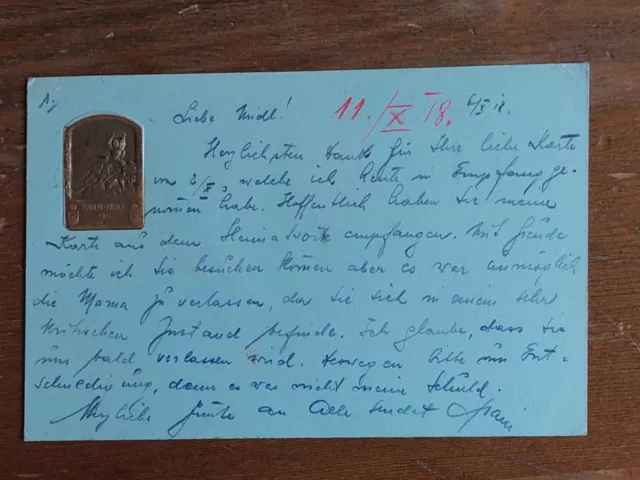 Liebe Midl!
11./X 18.
6/X 18.
Herzlichsten Dank für Ihre liebe Karte
vom 2/X, welche ich heute in Empfang ge-
nommen habe. Hoffentlich haben Sie meine
Karte aus dem Heimatsorte empfangen. Mit Freude
möchte ich Sie besuchen können aber es war unmöglich
die Mama zu verlassen, da Sie sich in einem sehr
kritischen Zustand befinde. Ich glaube, dass Sie
uns bald verlassen wird. Deswegen bitte um Ent-
schuldigung, denn es war nicht meine Schuld.
Herzliche Grüsse an Alle sendet